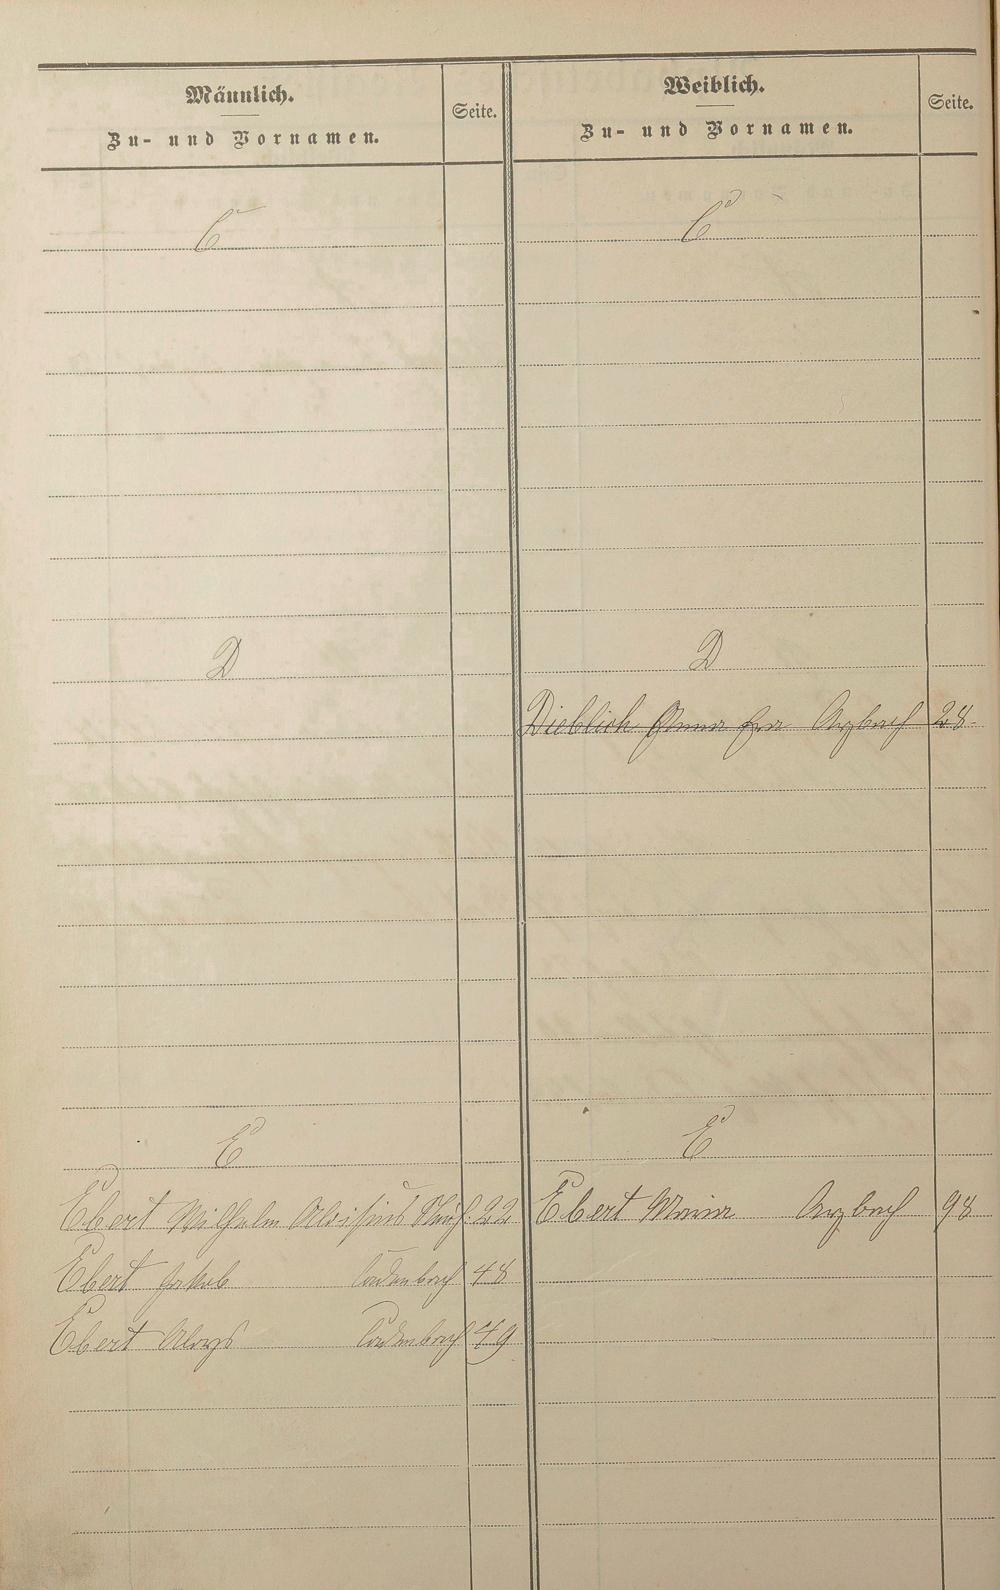 Männlich.
Zu- und Vornamen.
Seite.
Weiblich.
Zu- und Vornamen.
Seite.
C
C
D
D
Dieblich Anna Arzbach 28.
E
E
Ebert Wilhelm Aloisius 22
Ebert Maria Arzbach 98
Ebert Jakob Cadenbach 48
Ebert Aloys Cadenbach 49